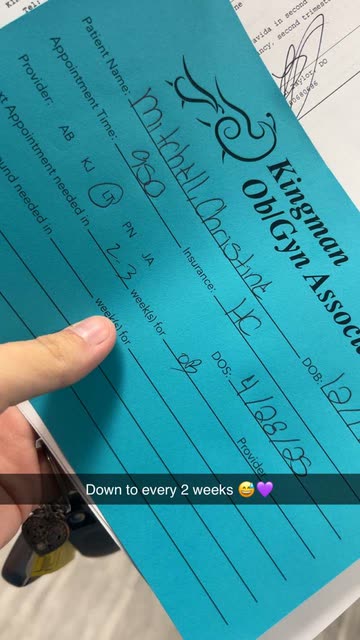 avida in second
ncy, second trimeste
Taylor, DO
Kingman
Ob/Gyn Associa
Patient Name: Mitchell, Christine DOB: 12/1
Appointment Time: 950 Insurance: HC DOS: 4/28/25
Provider: AB KJ LT PN JA Provide
xt Appointment needed in 2-3 week(s) for ob
ound needed in week(s) for
Down to every 2 weeks 😅💜